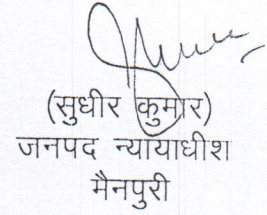 (सुधीर कुमार)
जनपद न्यायाधीश
मैनपुरी